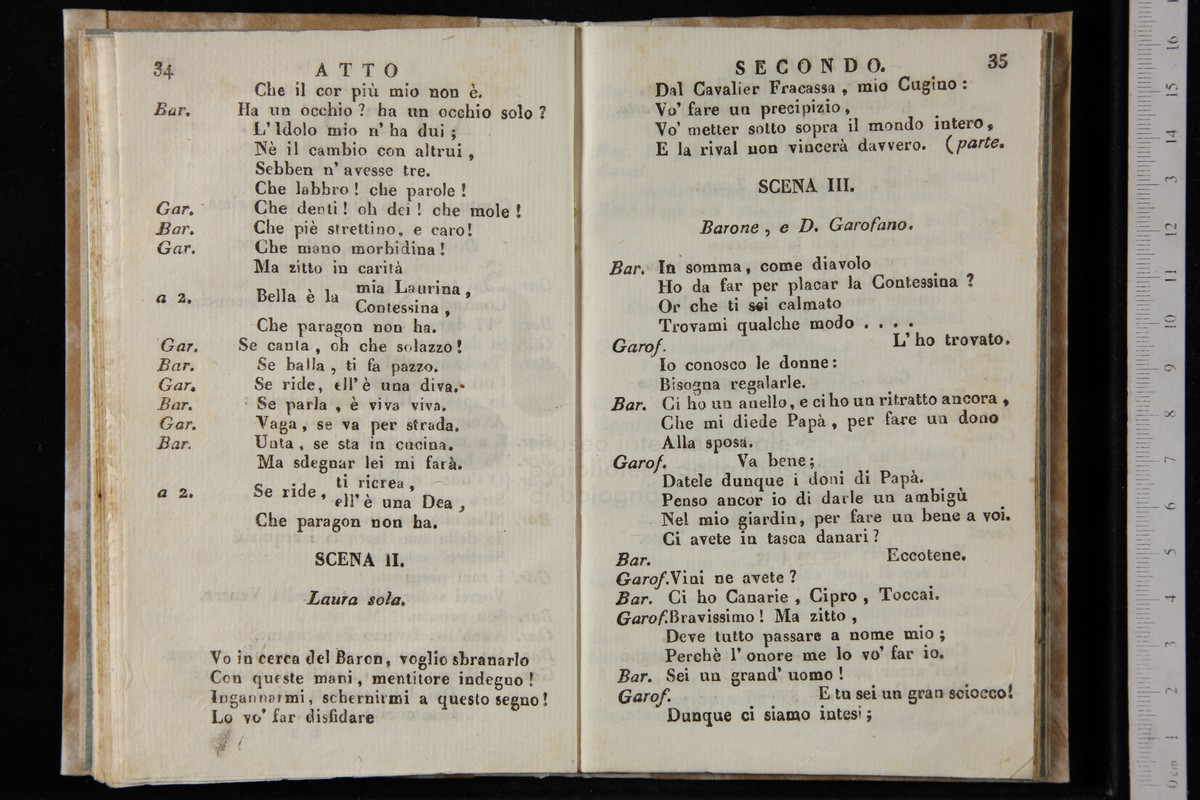 34
ATTO
Che il cor più mio non è.
Bar. Ha un occhio ? ha un occhio solo ?
L' Idolo mio n' ha dui ;
Nè il cambio con altrui ,
Sebben n' avesse tre.
Che labbro ! che parole !
Gar. Che denti ! oh dei ! che mole !
Bar. Che piè strettino, e caro!
Gar. Che mano morbidina !
Ma zitto in carità
a 2. Bella è la mia Laurina ,
Contessina ,
Che paragon non ha.
Gar. Se canta , oh che solazzo !
Bar. Se balla , ti fa pazzo.
Gar. Se ride, ell' è una diva.
Bar. Se parla , è viva viva.
Gar. Vaga , se va per strada.
Bar. Unta , se sta in cucina.
Ma sdegnar lei mi farà.
a 2. Se ride , ti ricrea ,
ell' è una Dea ,
Che paragon non ha.
SCENA II.
Laura sola.
Vo in cerca del Baron, voglio sbranarlo
Con queste mani , mentitore indegno !
Ingannarmi , schernirmi a questo segno !
Lo vo' far disfidare
SECONDO.
35
Dal Cavalier Fracassa , mio Cugino :
Vo' fare un precipizio ,
Vo' metter sotto sopra il mondo intero,
E la rival non vincerà davvero. (parte.
SCENA III.
Barone , e D. Garofano.
Bar. In somma, come diavolo
Ho da far per placar la Contessina ?
Or che ti sei calmato
Trovami qualche modo . . . .
Garof. L' ho trovato.
Io conosco le donne :
Bisogna regalarle.
Bar. Ci ho un anello, e ci ho un ritratto ancora ,
Che mi diede Papà , per fare un dono
Alla sposa.
Garof. Va bene ;
Datele dunque i doni di Papà.
Penso ancor io di darle un ambigù
Nel mio giardin, per fare un bene a voi.
Ci avete in tasca danari ?
Bar. Eccotene.
Garof. Vini ne avete ?
Bar. Ci ho Canarie , Cipro , Toccai.
Garof. Bravissimo ! Ma zitto ,
Deve tutto passare a nome mio ;
Perchè l' onore me lo vo' far io.
Bar. Sei un grand' uomo !
Garof. E tu sei un gran sciocco!
Dunque ci siamo intesi ;